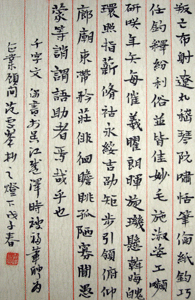 叛亡布射遼丸嵇琴阮嘯恬筆倫紙鈞巧
任釣釋紛利俗並皆佳妙毛施淑姿工嚬
妍咲年矢每催羲曜朗暉旋璣懸斡晦魄
環照指薪脩祜永綏吉劭矩步引領俯仰
廊廟束帶矜莊徘徊瞻眺孤陋寡聞愚
蒙等誚謂語助者焉哉乎也
千字文 書於吳江 澤時
燈下戊子春